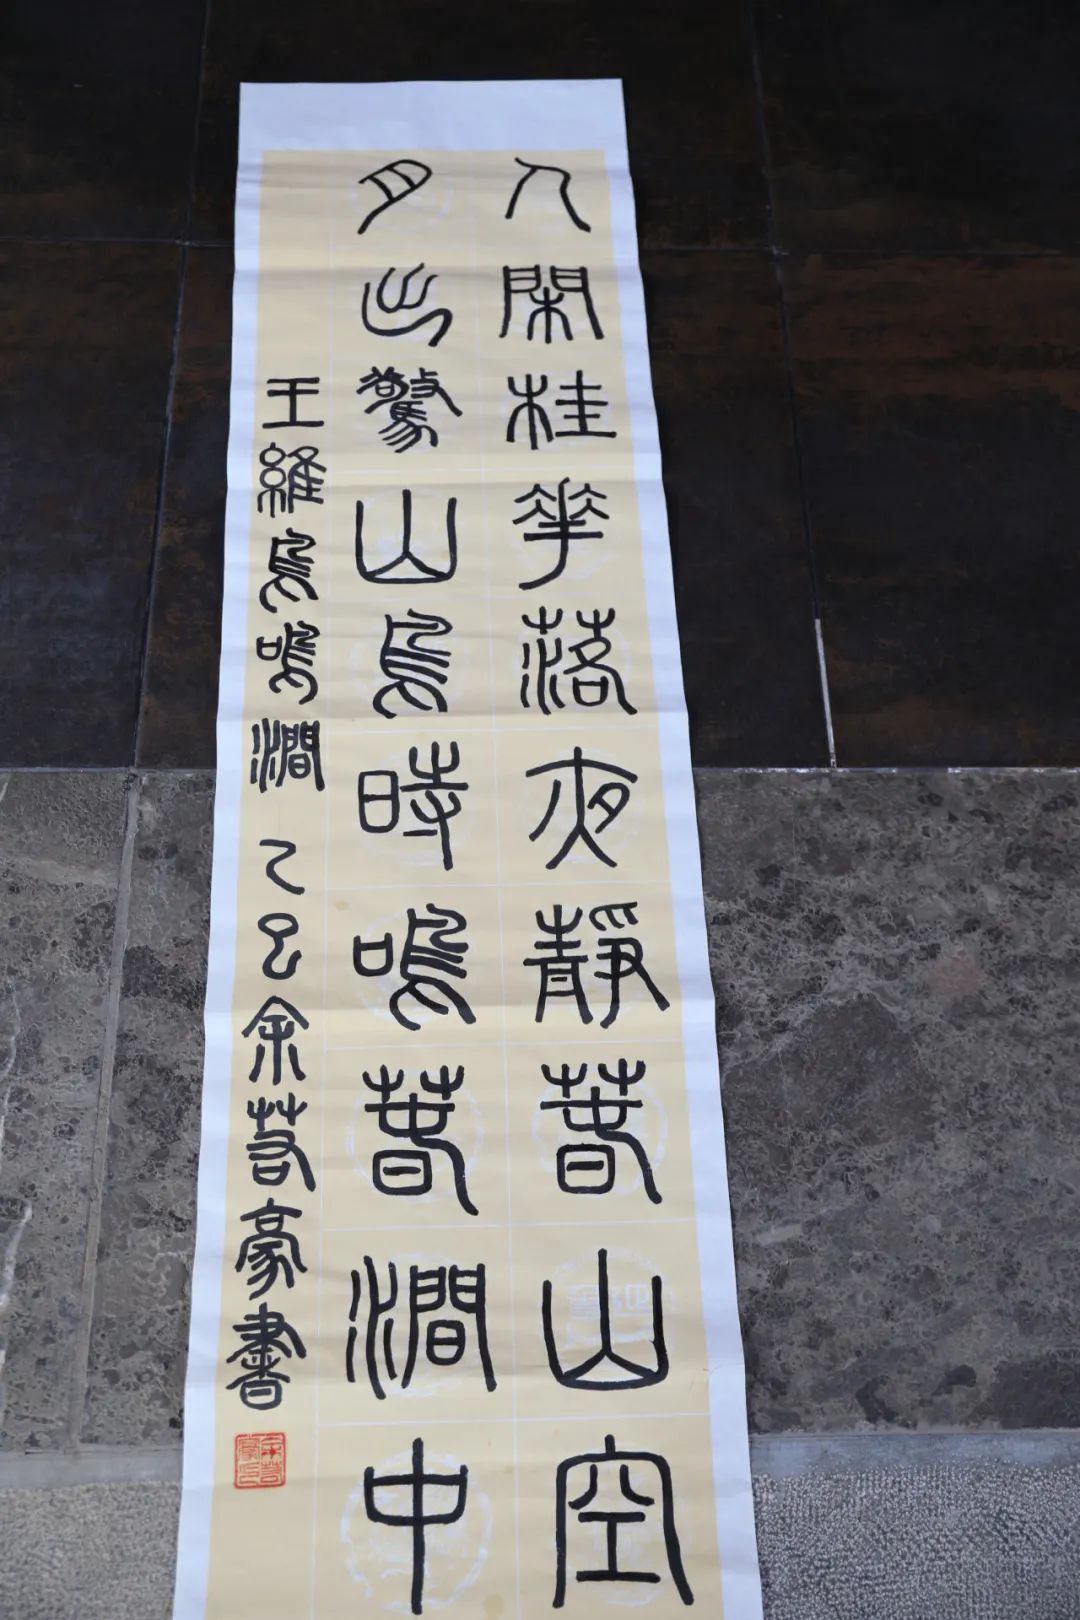 人閑桂花落夜靜春山空
月出驚山鳥時鳴春澗中
王維鳥鳴澗 乙巳余茗豪書